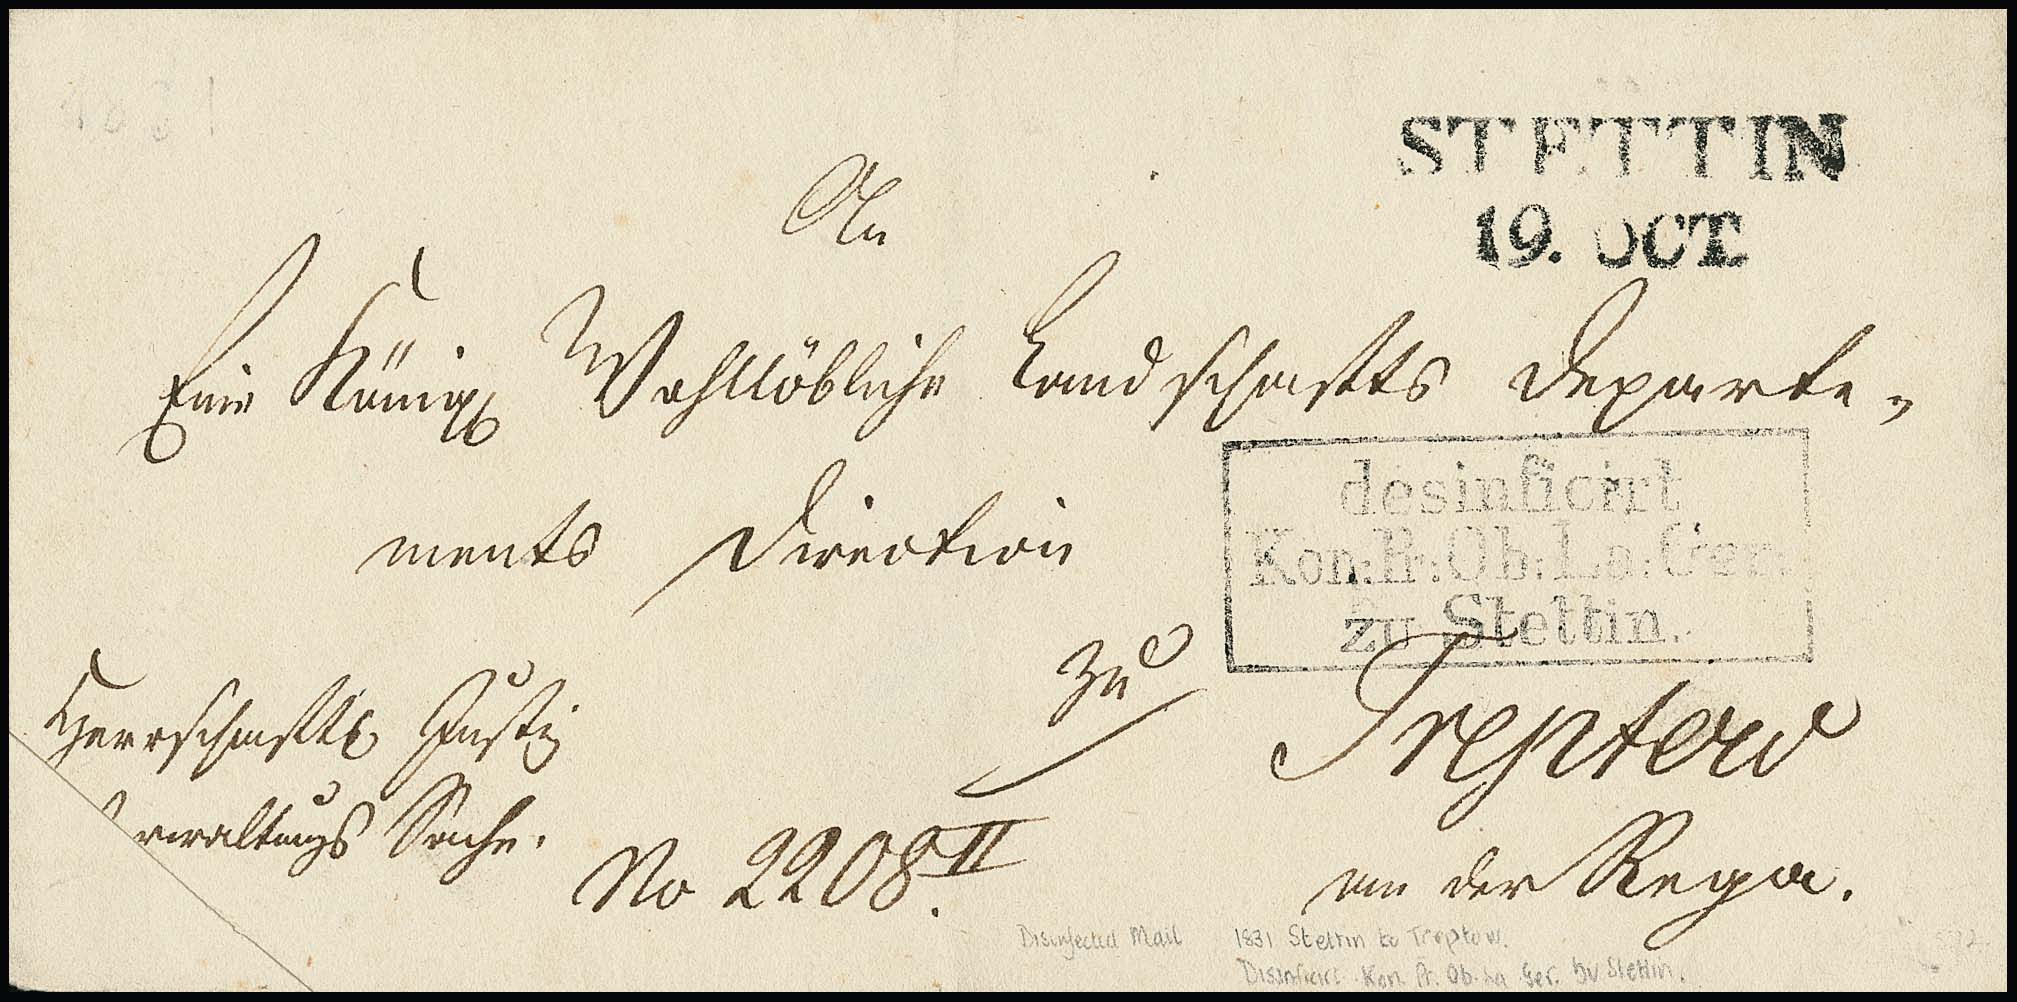 1831
STETTIN
19. OCT.
An
Eine Königl Wohllöbliche Landschafts Departe=
ments Direction
desinficirt
Kön: Pr: Ob: La: Ger:
zu Stettin.
zu
Treptow
an der Rega.
Herrschaftl Justiz
Verwaltungs Sache.
No 2208 II.
Disinfected Mail
1831 Stettin to Treptow.
Disinficirt Kon. Pr. Ob. La Ger. zu Stettin.